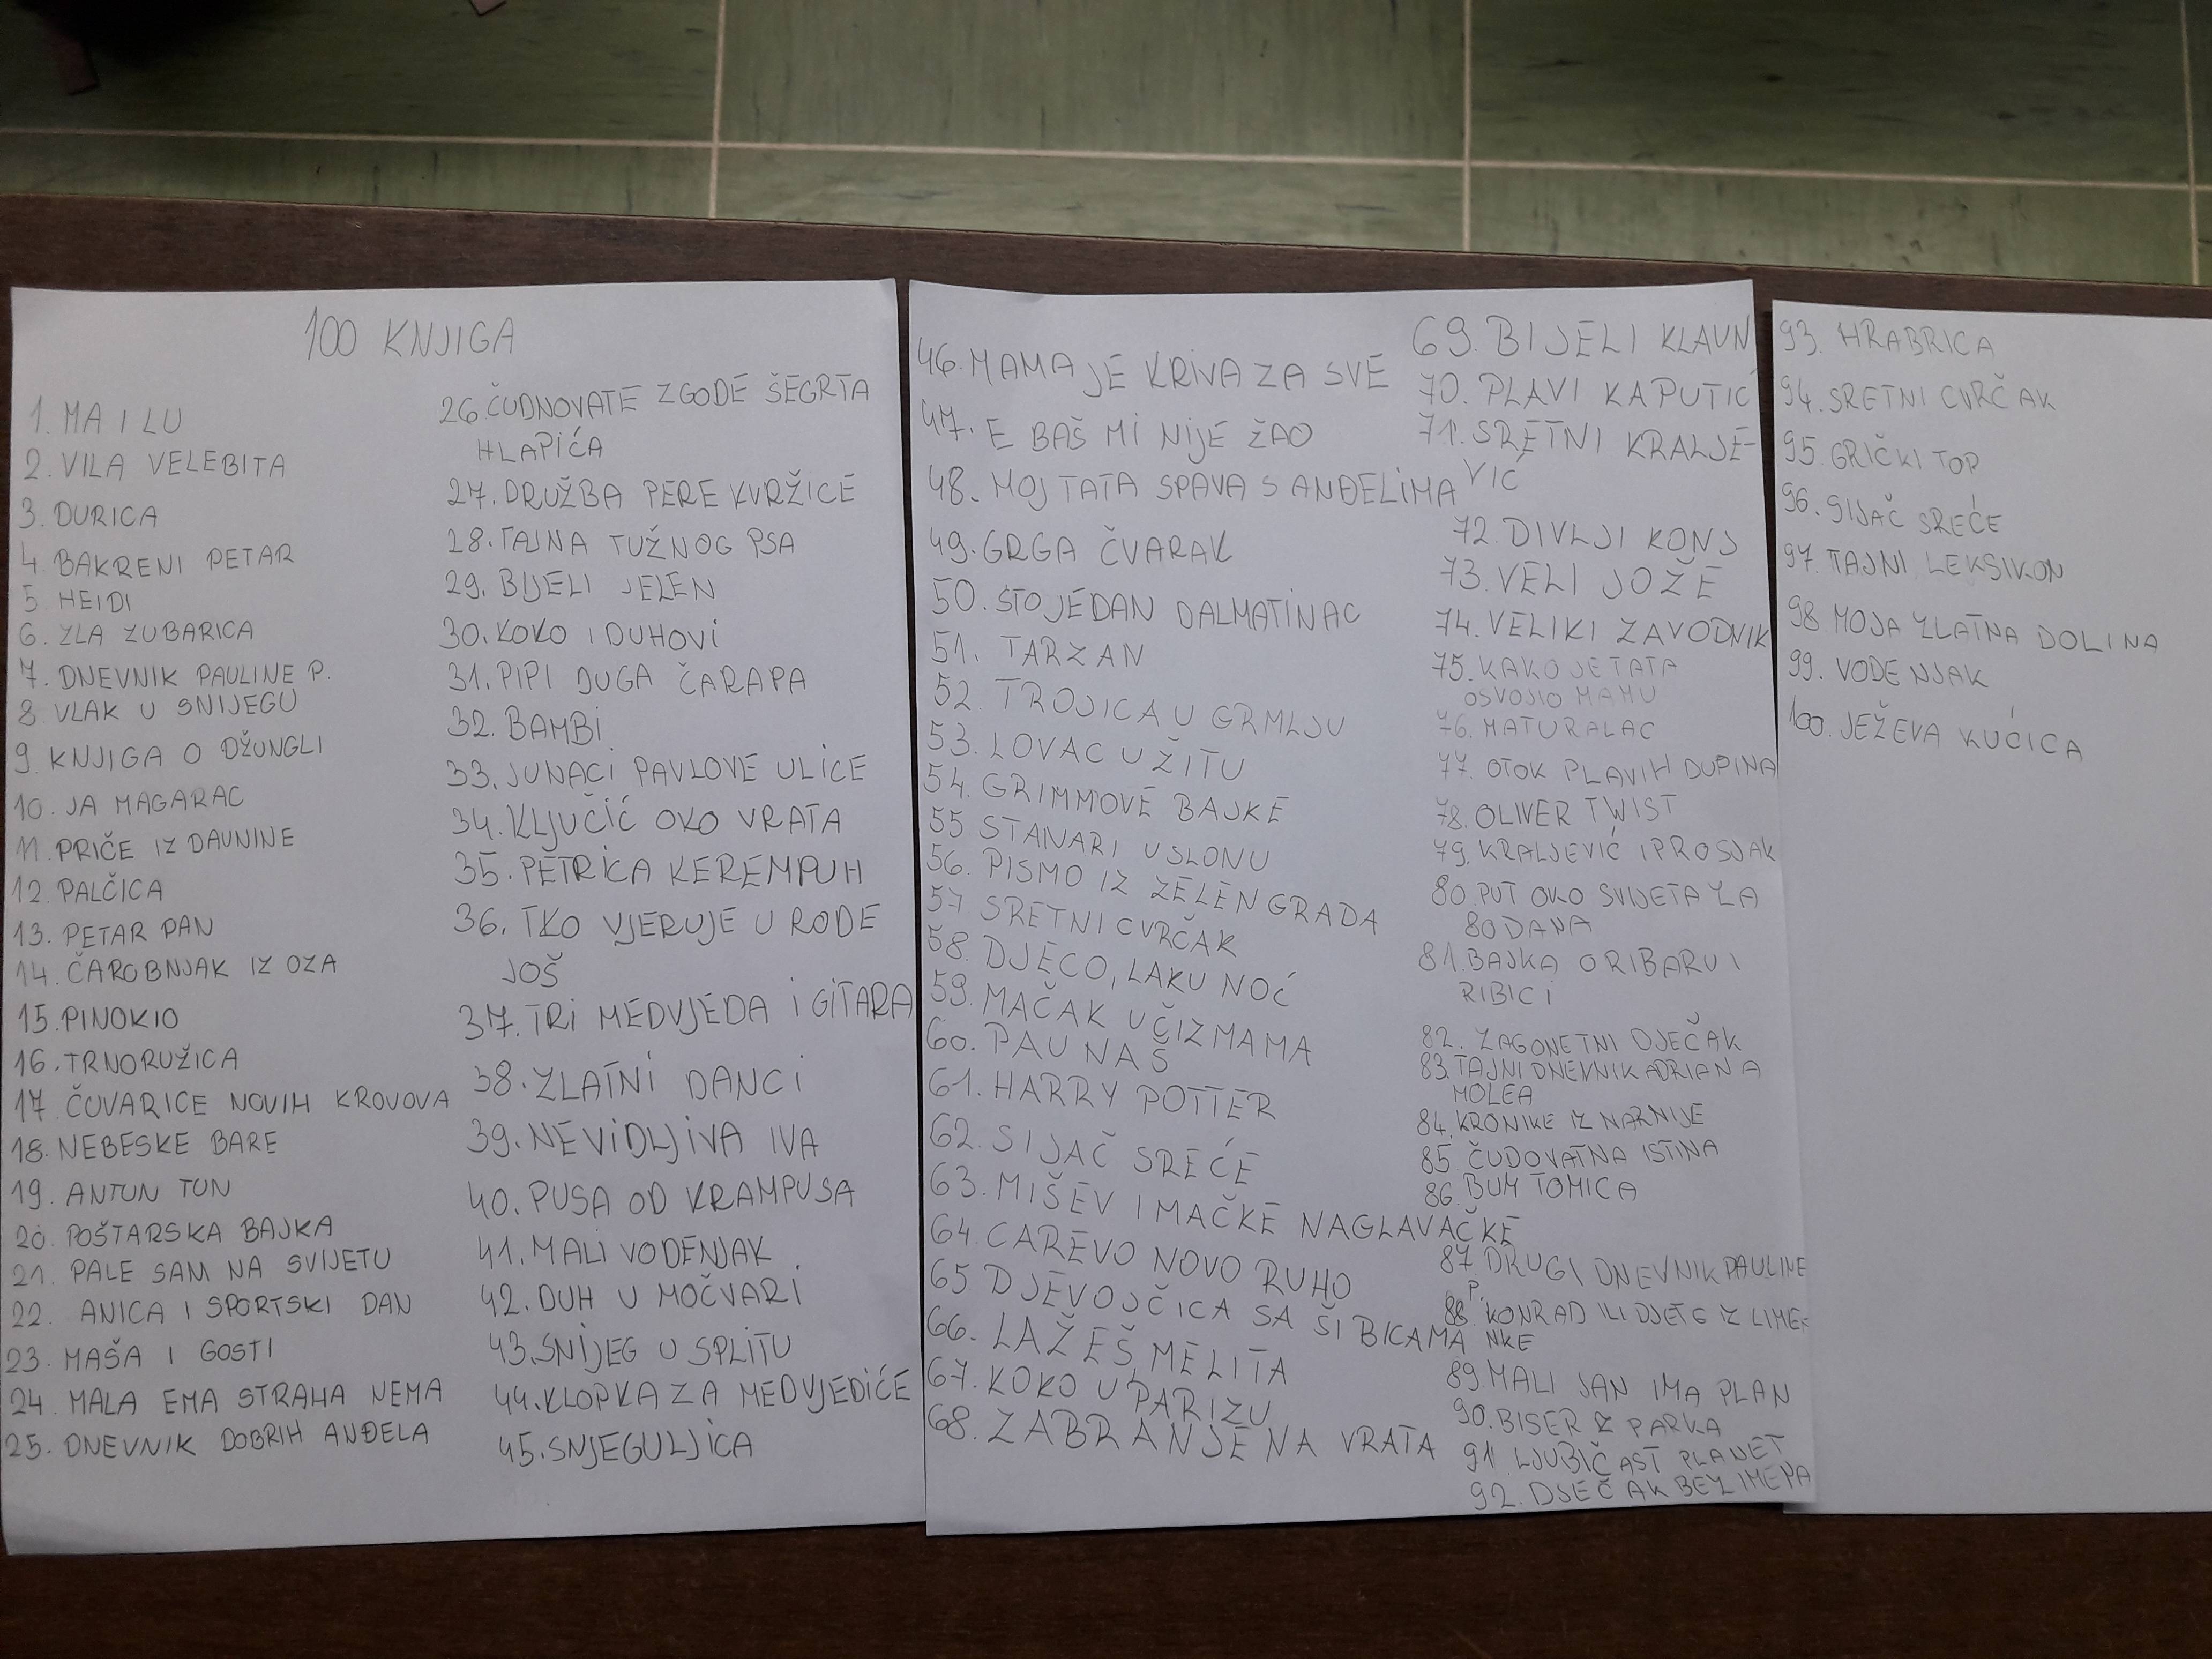 100 KNJIGA
1. MA I LU
2. VILA VELEBITA
3. DURICA
4. BAKRENI PETAR
5. HEIDI
6. ZLA ZUBARICA
7. DNEVNIK PAULINE P.
8. VLAK U SNIJEGU
9. KNJIGA O DŽUNGLI
10. JA MAGARAC
11. PRIČE IZ DAVNINE
12. PALČICA
13. PETAR PAN
14. ČAROBNJAK IZ OZA
15. PINOKIO
16. TRNORUŽICA
17. ČUVARICE NOVIH KROVOVA
18. NEBESKE BARE
19. ANTUN TUN
20. POŠTARSKA BAJKA
21. PALE SAM NA SVIJETU
22. ANICA I SPORTSKI DAN
23. MAŠA I GOSTI
24. MALA EMA STRAHA NEMA
25. DNEVNIK DOBRIH ANĐELA
26. ČUDNOVATE ZGODE ŠEGRTA
HLAPIĆA
27. DRUŽBA PERE KVRŽICE
28. TAJNA TUŽNOG PSA
29. BIJELI JELEN
30. KOKO I DUHOVI
31. PIPI DUGA ČARAPA
32. BAMBI
33. JUNACI PAVLOVE ULICE
34. KLJUČIĆ OKO VRATA
35. PETRICA KEREMPUH
36. TKO VJERUJE U RODE
JOŠ
37. TRI MEDVJEDA I GITARA
38. ZLATNI DANCI
39. NEVIDLJIVA IVA
40. PUSA OD KRAMPUSA
41. MALI VODENJAK
42. DUH U MOČVARI
43. SNIJEG U SPLITU
44. KLOPKA ZA MEDVJEDIĆE
45. SNJEGULJICA
46. MAMA JE KRIVA ZA SVE
47. E BAŠ MI NIJE ŽAO
48. MOJ TATA SPAVA S ANĐELIMA
49. GRGA ČVARAK
50. STO JEDAN DALMATINAC
51. TARZAN
52. TROJICA U GRMLJU
53. LOVAC U ŽITU
54. GRIMMOVE BAJKE
55 STANARI U SLONU
56. PISMO IZ ZELENGRADA
57 SRETNI CVRČAK
58. DJECO, LAKU NOĆ
59. MAČAK U ČIZMAMA
60. PAUNAŠ
61. HARRY POTTER
62. SIJAČ SREĆE
63. MIŠEVI MAČKE NAGLAVAČKE
64. CAREVO NOVO RUHO
65. DJEVOJČICA SA ŠIBICAMA
66. LAŽEŠ, MELITA
67. KOKO U PARIZU
68. ZABRANJE NA VRATA
69. BIJELI KLAUN
70. PLAVI KAPUTIĆ
71. SRETNI KRALJE-
VIĆ
72. DIVLJI KONJ
73. VELI JOŽE
74. VELIKI ZAVODNIK
75. KAKO JE TATA
OSVOJIO MAMU
76. MATURALAC
77. OTOK PLAVIH DUPINA
78. OLIVER TWIST
79. KRALJEVIĆ I PROSJAK
80. PUT OKO SVIJETA ZA
80 DANA
81. BAJKA O RIBARU I
RIBICI
82. ZAGONETNI DJEČAK
83. TAJNI DNEVNIK ADRIANA
MOLEA
84. KRONIKE IZ NARNIJE
85 ČUDOVATNA ISTINA
86. BUM TOMICA
87 DRUGI DNEVNIK PAULINE
P.
88. KONRAD ILI DJETE IZ LIME-
NKE
89. MALI JAN IMA PLAN
90. BISER IZ PARKA
91 LJUBIČAST PLANET
92. DJEČAK BEZ IMENA
93. HRABRICA
94. SRETNI CVRČAK
95. GRIČKI TOP
96. SIJAČ SREĆE
97. TAJNI LEKSIKON
98 MOJA ZLATNA DOLINA
99. VODENJAK
100. JEŽEVA KUĆICA